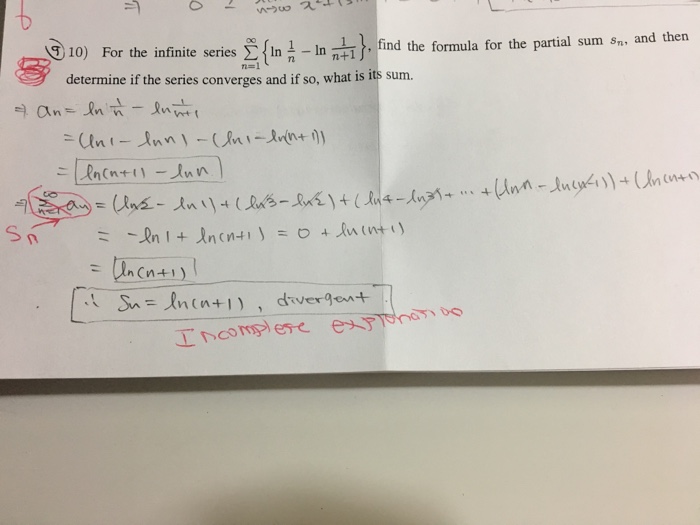 ⇒ 0
n→∞
6
9 10) For the infinite series ∑_{n=1}^{∞} {ln 1/n − ln 1/(n+1)}, find the formula for the partial sum sₙ, and then
determine if the series converges and if so, what is its sum.
⇒ an = ln 1/n − ln 1/(n+1)
= (ln1 − lnn) − (ln1 − ln(n+1))
= ln(n+1) − lnn
⇒ ∑_{n=1}^{∞} an = (ln2 − ln1) + (ln3 − ln2) + (ln4 − ln3) + ⋯ + (lnn − ln(n-1)) + (ln(n+1)
Sn
= −ln1 + ln(n+1) = 0 + ln(n+1)
= ln(n+1)
∴ Sn = ln(n+1), divergent.
Incomplete explanation